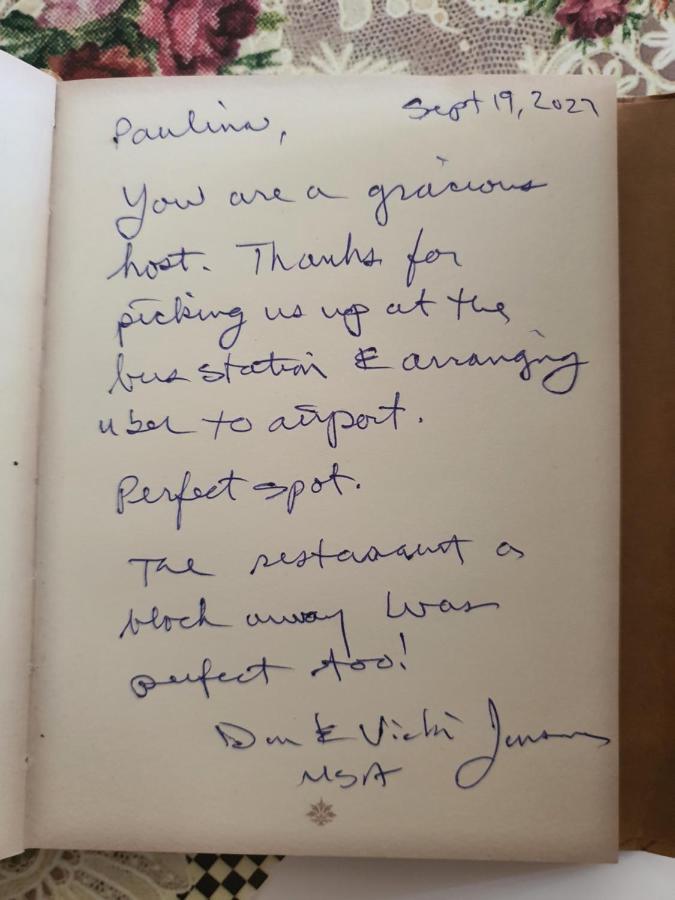 Paulina,
Sept 19, 2027
You are a gracious
host. Thanks for
picking us up at the
bus station & arranging
uber to airport.
Perfect spot.
The restaurant a
block away was
perfect too!
& Vicki
USA